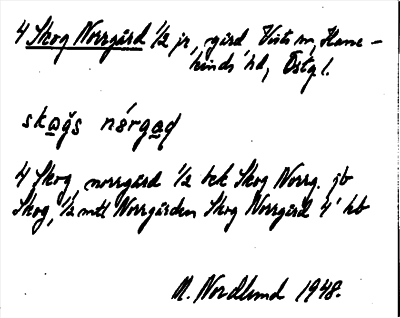 4 Skog Norrgård 1/2 jr, gård, Vists sn, Hane-
kinds hd, Östgl.
skoğs nǿrgaḍ
4 Skog, norrgård 1/2 bek Skog Norrg. jb
Skog, 1/2 mtl Norrgården Skog Norrgård 4' kb
M. Nordlund 1948.